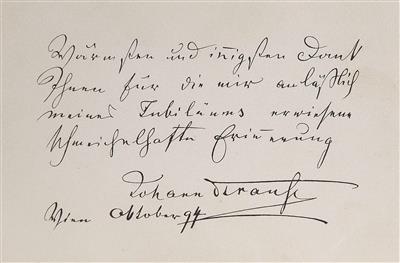 Wärmsten und innigsten Dank
Ihnen für die mir anläßlich
meines Jubiläums erwiesene
schmeichelhafte Erinnerung
Johann Strauss
Wien Oktober 94